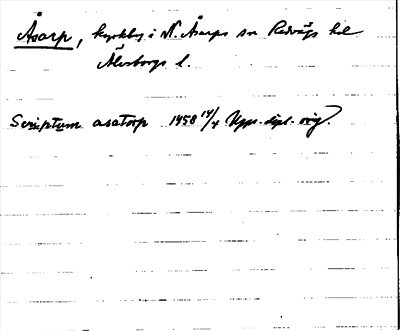 Åsarp, kyrkby i N. Åsarps sn Redvägs hd
Älvsborgs l.
Scriptum asatorp 1458 14/4 Upps. dipl. orig.